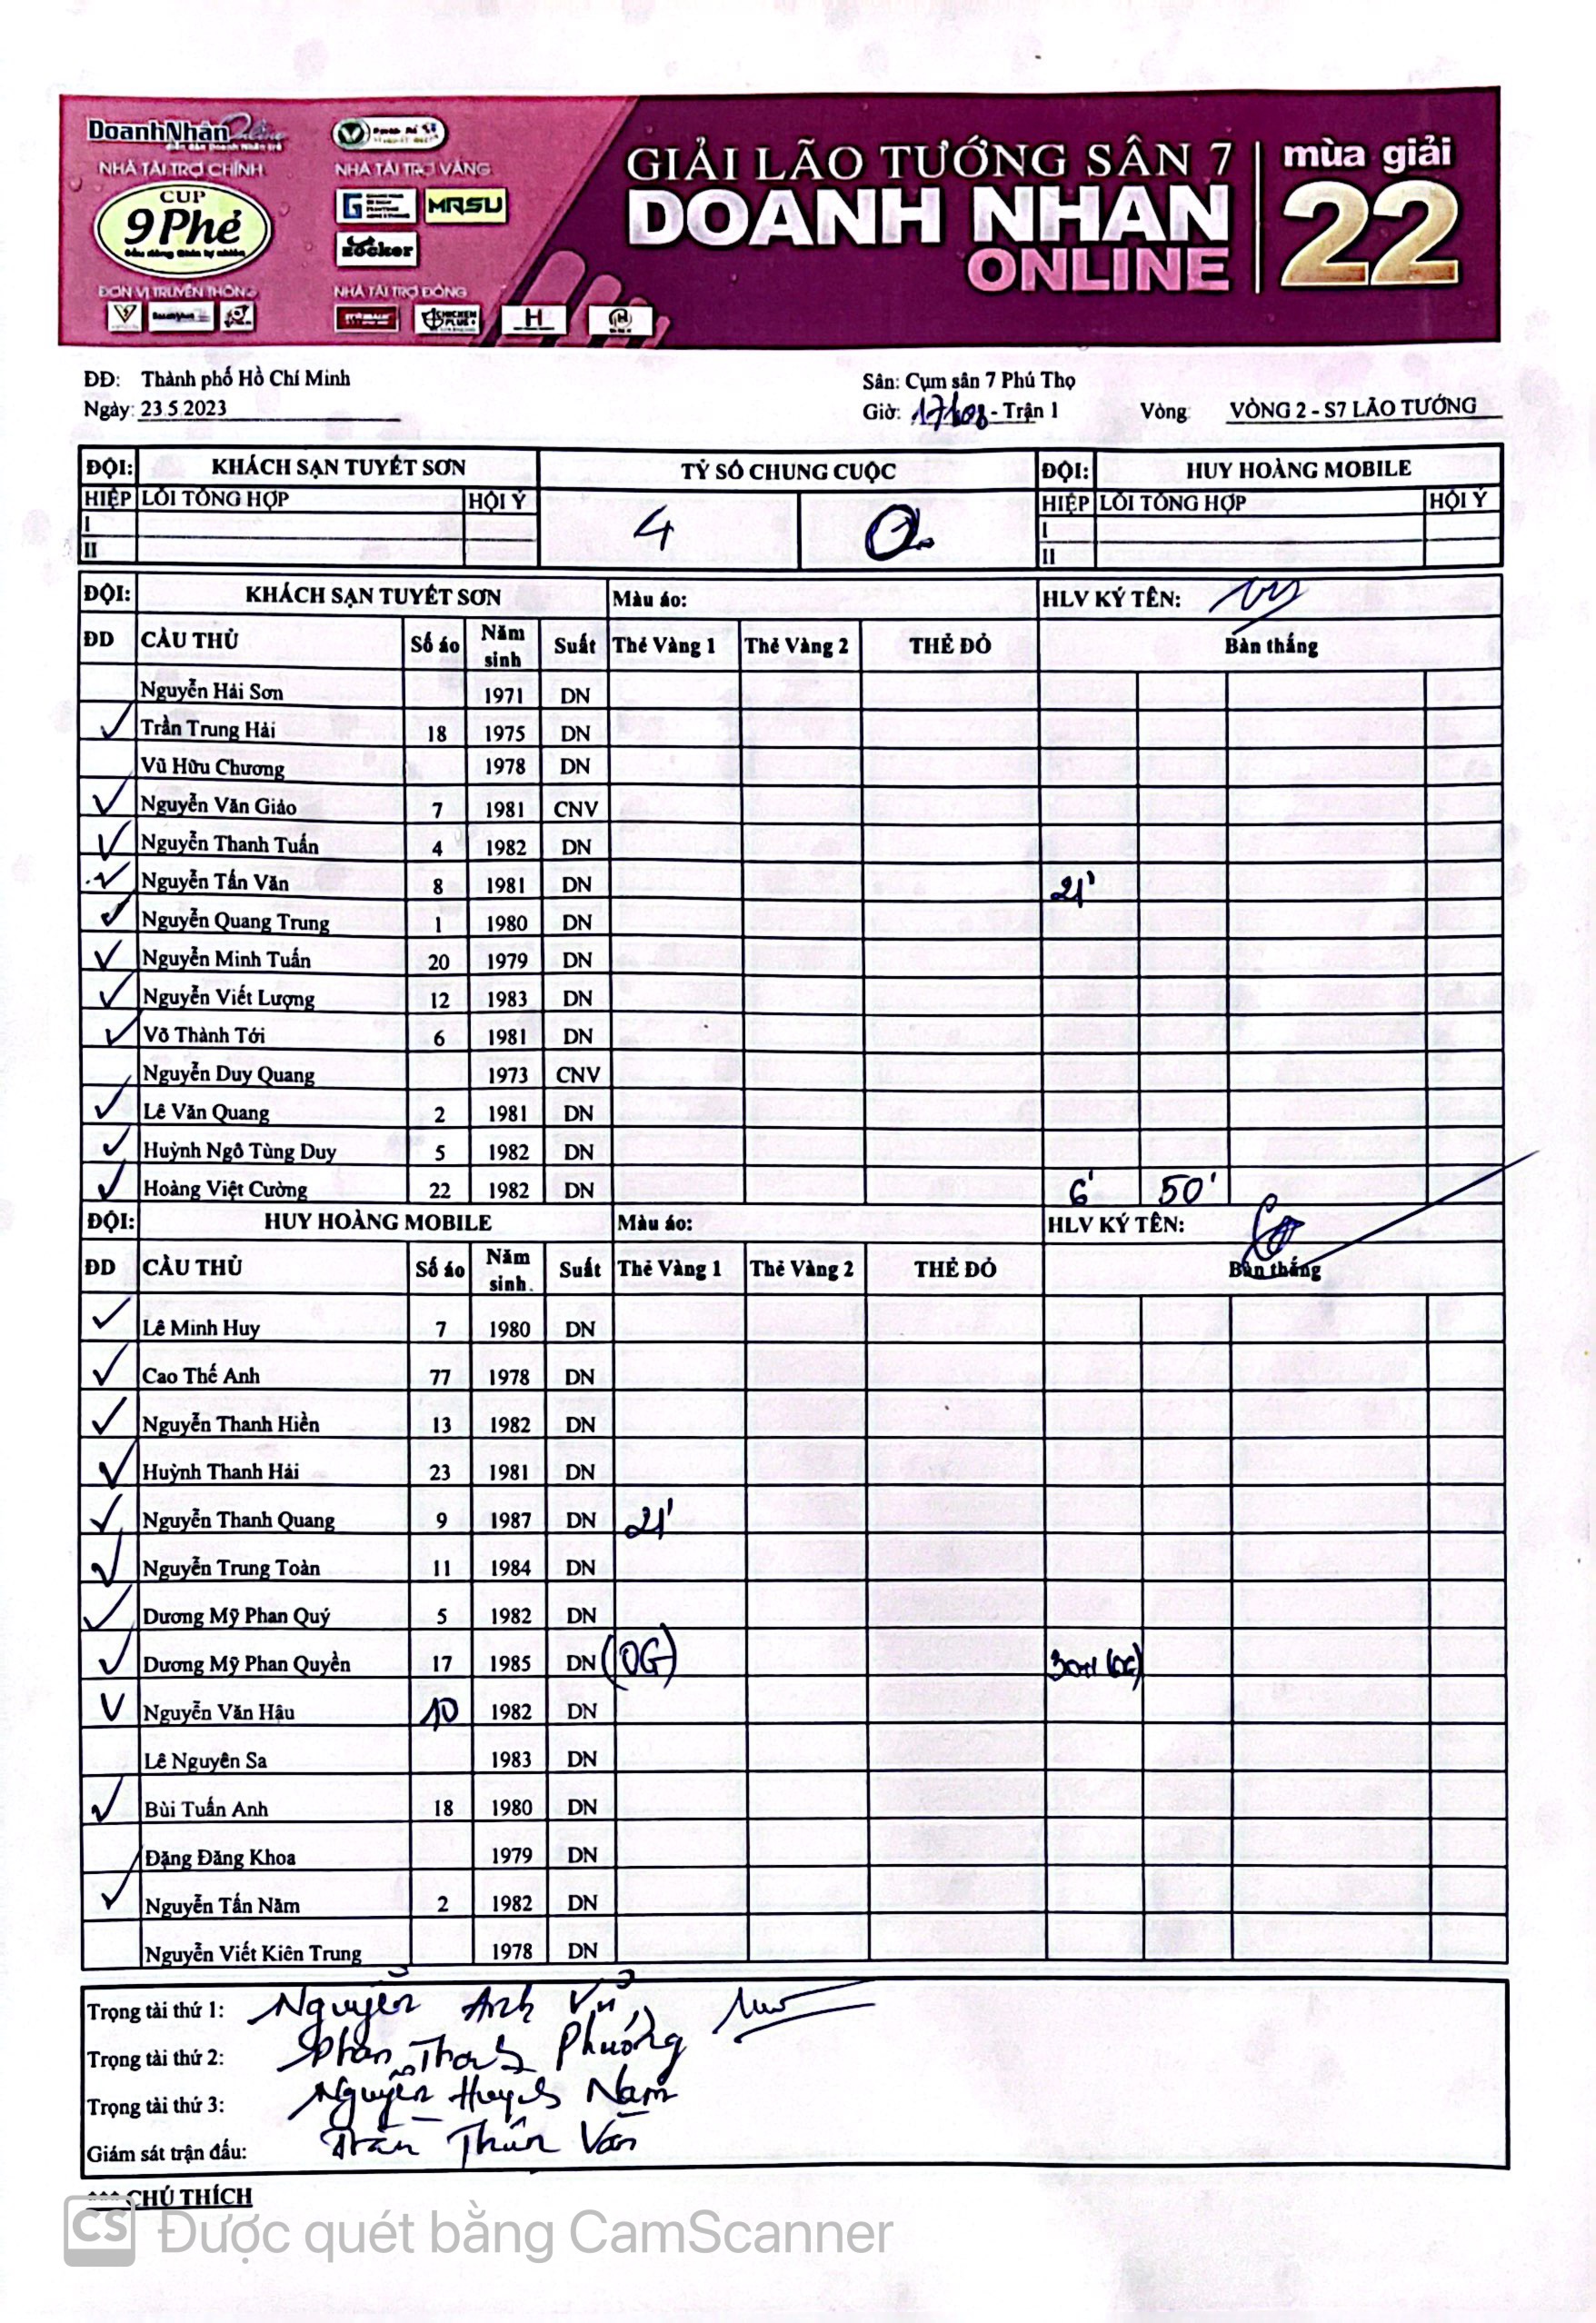 DoanhNhân Online
diễn đàn Doanh Nhân trẻ
NHÀ TÀI TRỢ CHÍNH
NHÀ TÀI TRỢ VÀNG
CUP
9 Phẻ
MRSU
zocker
ĐƠN VỊ TRUYỀN THÔNG
NHÀ TÀI TRỢ ĐỒNG
CHICKEN PLUS
H
GIẢI LÃO TƯỚNG SÂN 7
DOANH NHÂN
ONLINE
mùa giải
22
ĐĐ: Thành phố Hồ Chí Minh
Sân: Cụm sân 7 Phú Thọ
Ngày: 23.5.2023
Giờ: - Trận 1 Vòng VÒNG 2 - S7 LÃO TƯỚNG
ĐỘI: KHÁCH SẠN TUYẾT SƠN TỶ SỐ CHUNG CUỘC ĐỘI: HUY HOÀNG MOBILE
HIỆP LỖI TỔNG HỢP HỘI Ý 4 0 HIỆP LỖI TỔNG HỢP HỘI Ý
I I
II II
ĐỘI: KHÁCH SẠN TUYẾT SƠN Màu áo: HLV KÝ TÊN:
ĐD CẦU THỦ Số áo Năm sinh Suất Thẻ Vàng 1 Thẻ Vàng 2 THẺ ĐỎ Bàn thắng
Nguyễn Hải Sơn 1971 DN
✓ Trần Trung Hải 18 1975 DN
Vũ Hữu Chương 1978 DN
✓ Nguyễn Văn Giảo 7 1981 CNV
✓ Nguyễn Thanh Tuấn 4 1982 DN
✓ Nguyễn Tấn Văn 8 1981 DN 21'
✓ Nguyễn Quang Trung 1 1980 DN
✓ Nguyễn Minh Tuấn 20 1979 DN
✓ Nguyễn Viết Lượng 12 1983 DN
✓ Võ Thành Tới 6 1981 DN
Nguyễn Duy Quang 1973 CNV
✓ Lê Văn Quang 2 1981 DN
✓ Huỳnh Ngô Tùng Duy 5 1982 DN
✓ Hoàng Việt Cường 22 1982 DN 6' 50'
ĐỘI: HUY HOÀNG MOBILE Màu áo: HLV KÝ TÊN:
ĐD CẦU THỦ Số áo Năm sinh. Suất Thẻ Vàng 1 Thẻ Vàng 2 THẺ ĐỎ Bàn thắng
✓ Lê Minh Huy 7 1980 DN
✓ Cao Thế Anh 77 1978 DN
✓ Nguyễn Thanh Hiền 13 1982 DN
✓ Huỳnh Thanh Hải 23 1981 DN
✓ Nguyễn Thanh Quang 9 1987 DN 21'
✓ Nguyễn Trung Toàn 11 1984 DN
✓ Dương Mỹ Phan Quý 5 1982 DN
✓ Dương Mỹ Phan Quyền 17 1985 DN (OG) 30+1 (OG)
✓ Nguyễn Văn Hậu 10 1982 DN
Lê Nguyên Sa 1983 DN
✓ Bùi Tuấn Anh 18 1980 DN
Đặng Đăng Khoa 1979 DN
✓ Nguyễn Tấn Năm 2 1982 DN
Nguyễn Viết Kiên Trung 1978 DN
Trọng tài thứ 1: Nguyễn Anh Vũ
Trọng tài thứ 2: Phan Thanh Phương
Trọng tài thứ 3: Nguyễn Huỳnh Nam
Giám sát trận đấu: Trần Thiên Văn
*** CHÚ THÍCH
CS Được quét bằng CamScanner